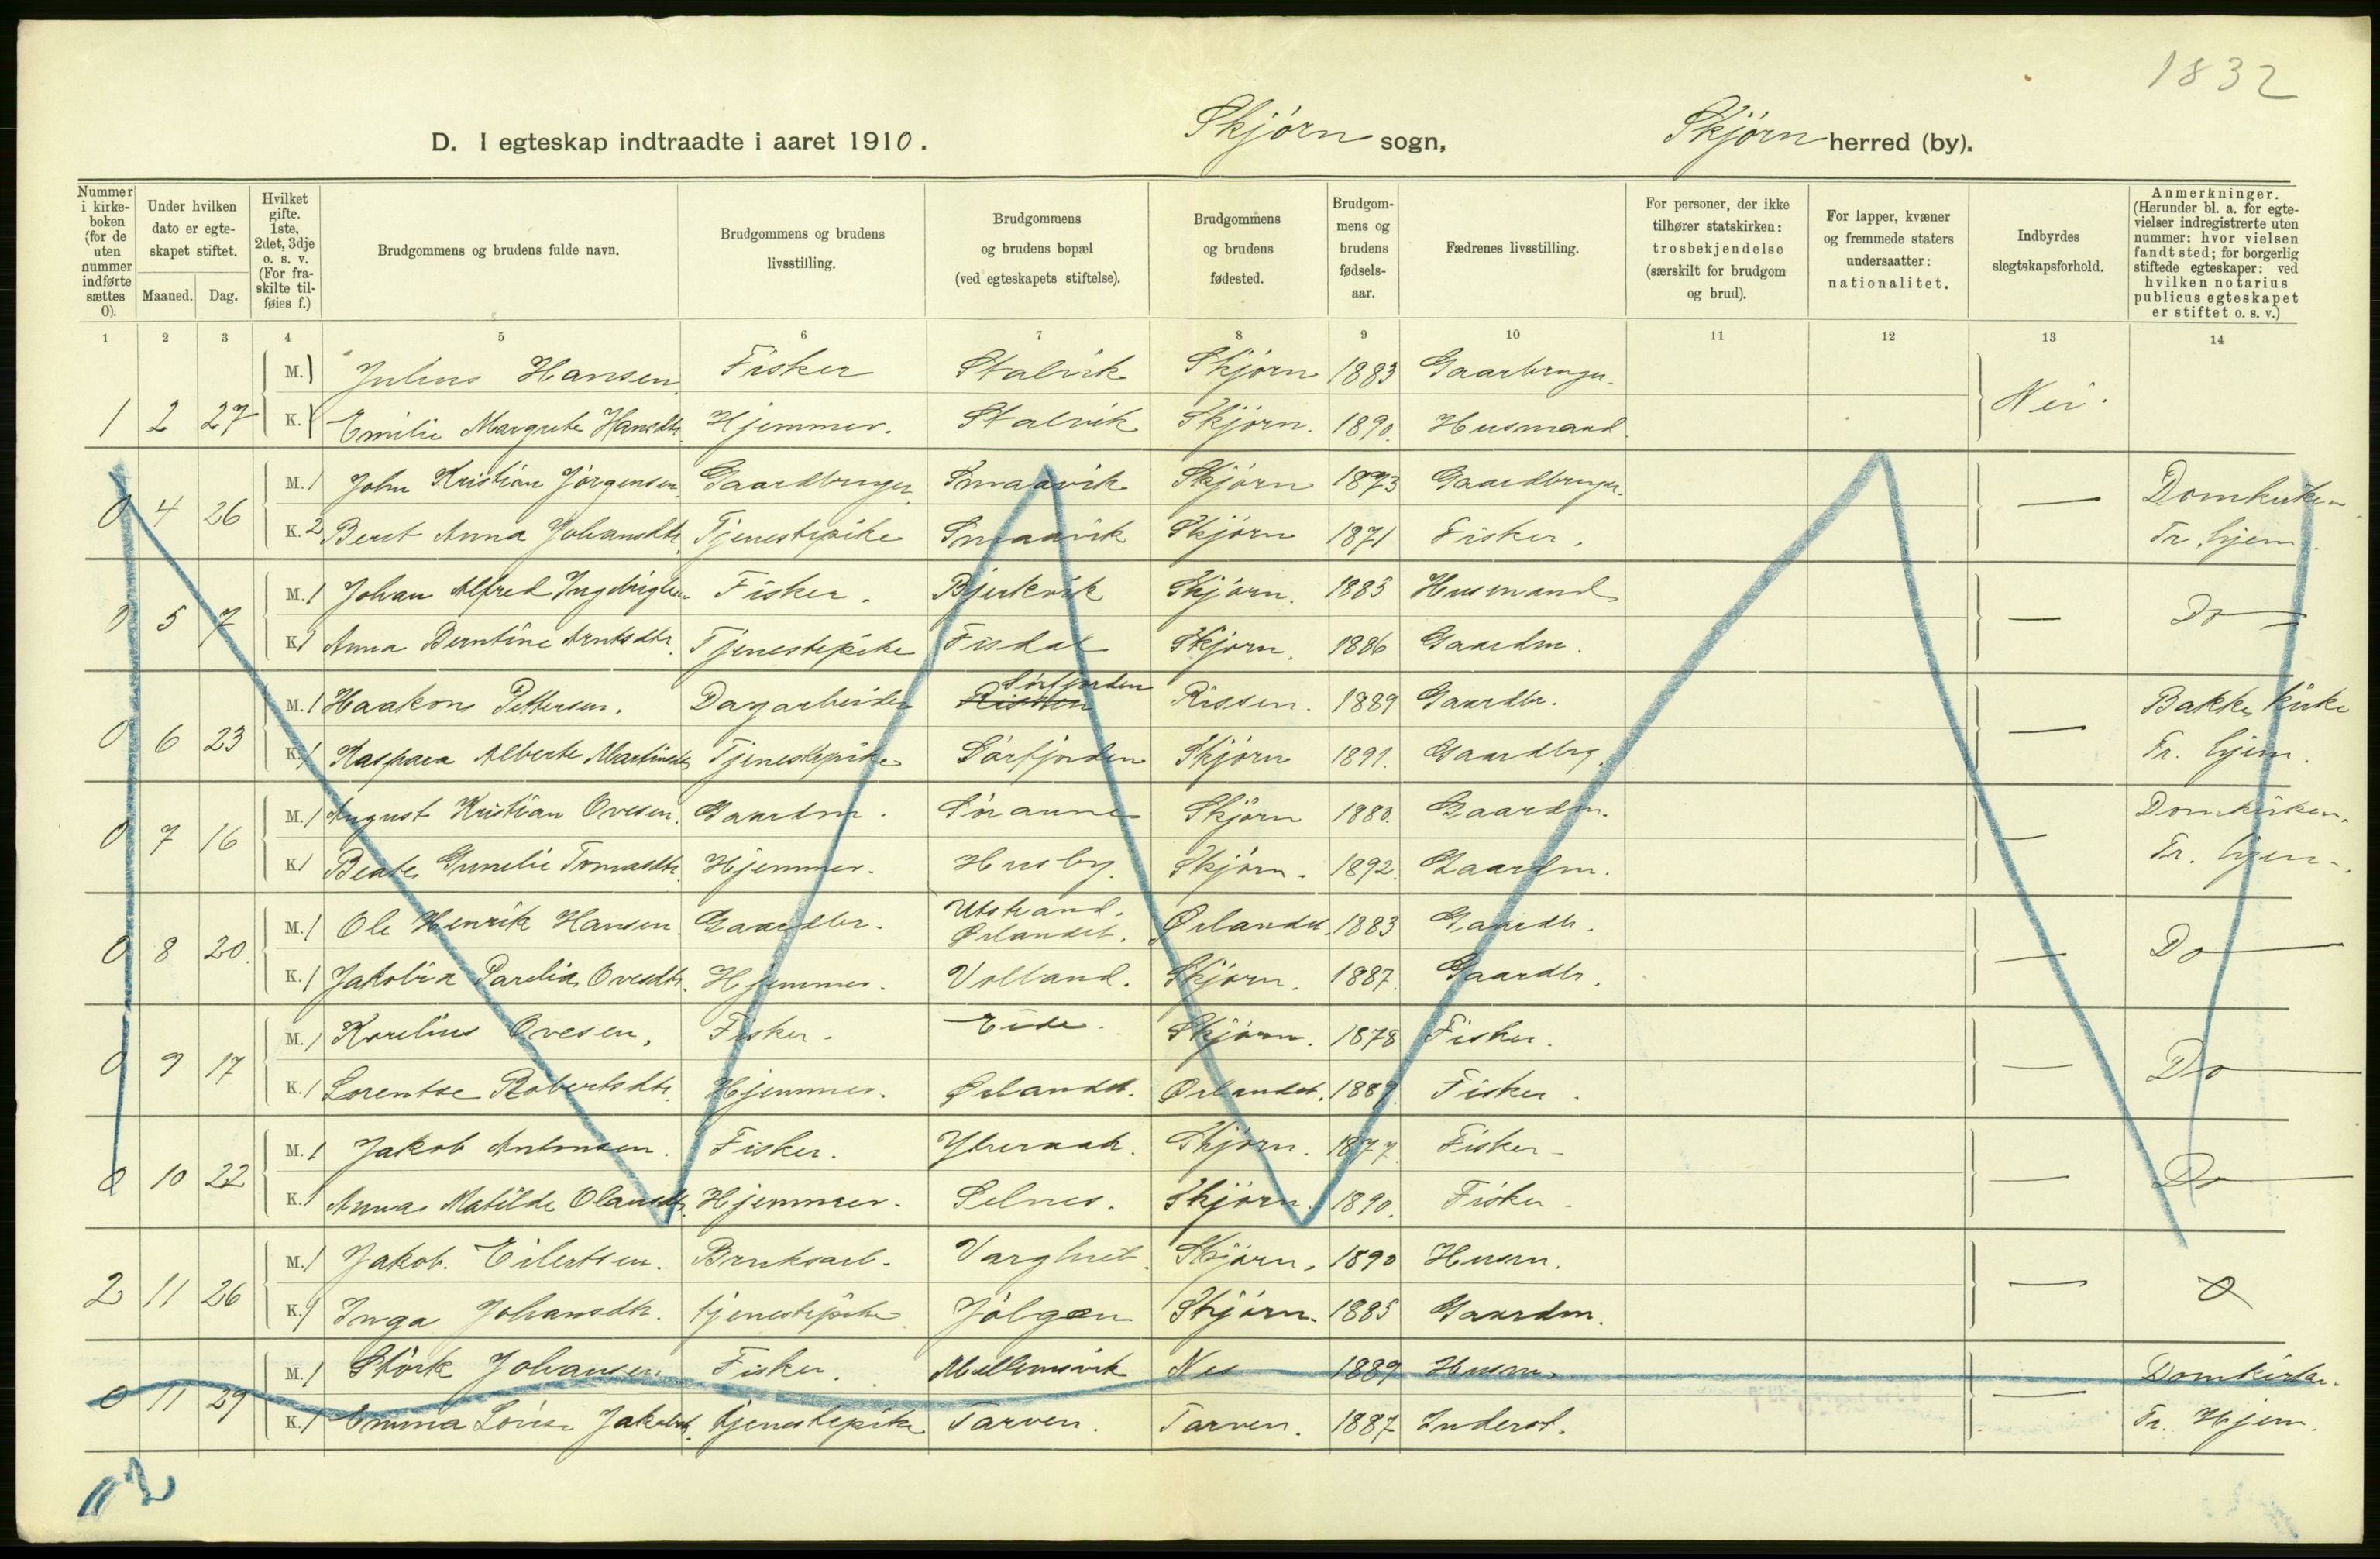 1832
D. I egteskap indtraadte i aaret 1910. Skjørn sogn, Skjørn herred (by).
Nummer i kirkeboken (for de uten nummer indførte sættes 0).
Under hvilken dato er egteskapet stiftet.
Maaned. Dag.
Hvilket gifte. 1ste, 2det, 3dje o. s. v. (For fraskilte tilføies f.)
Brudgommens og brudens fulde navn.
Brudgommens og brudens livsstilling.
Brudgommens og brudens bopæl (ved egteskapets stiftelse).
Brudgommens og brudens fødested.
Brudgommens og brudens fødselsaar.
Fædrenes livsstilling.
For personer, der ikke tilhører statskirken: trosbekjendelse (særskilt for brudgom og brud).
For lapper, kvæner og fremmede staters undersaatter: nationalitet.
Indbyrdes slegtskapsforhold.
Anmerkninger. (Herunder bl. a. for egtevielser indregistrerte uten nummer: hvor vielsen fandt sted; for borgerlig stiftede egteskaper: ved hvilken notarius publicus egteskapet er stiftet o. s. v.)
1 2 3 4 5 6 7 8 9 10 11 12 13 14
M. 1 Julius Hansen Fisker Stalvik Skjørn 1883 Gaarbruger.
1 2 27 K. 1 Emilie Margrete Hansdtr. Hjemmev. Stalvik Skjørn. 1890. Husmand. Nei.
M. 1 John Kristian Jørgensen. Gaardbruger Smaavik Skjørn 1873 Gaardbruger. Domkirken
0 4 26 K. 2 Berit Anna Johansdtr. Tjenestepike Smaavik Skjørn 1871 Fisker. — Tr. hjem.
M. 1 Johan Alfred Ingebrigtsen Fisker. Bjerkvik Skjørn. 1883 Husmand
0 5 7 K. 1 Anna Berntine Arntsdtr. Tjenestepike Fisdal Skjørn. 1886 Gaardm. — Do —
M. 1 Haakon Pettersen. Dagarbeider Rissen Sørfjorden Rissen. 1889 Gaardbr. Bakke kirke
0 6 23 K. 1 Kaspara Alberte Martinsdtr Tjenestepike Sørfjorden Skjørn 1891. Gaardbrg. — Tr. hjem.
M. 1 August Kristian Ovesen. Gaardm. Søraune Skjørn 1880. Gaardm. Domkirken.
0 7 16 K. 1 Beate Gunelie Tomasdtr. Hjemmev. Husby. Skjørn. 1892. Gaardm. — Tr. hjem.
M. 1 Ole Henrik Hansen. Gaardbr. Utstrand. Ørlandet. Ørlandet. 1883 Gaardb.
0 8 20. K. 1 Jakobia Parelia Ovesdtr. Hjemmev. Volland. Skjørn. 1887. Gaardb. — Do —
M. 1 Korelius Ovesen. Fisker. Eide. Skjørn. 1878 Fisker.
0 9 17 K. 1 Lorentse Robertsdtr. Hjemmev. Ørlandet. Ørlandet. 1889. Fisker. — Do —
M. 1 Jakob Antonsen. Fisker. Skjørn. 1877. Fisker
0 10 22 K. 1 Anna Matilde Olausdtr. Hjemmev. Selnes. Skjørn. 1890. Fisker — Do —
M. 1 Jakob. Eilertsen. Bruksarb. Varghiet. Skjørn. 1890 Husm.
2 11 26 K. 1 Inga Johansdtr. tjenestepike Jølgen Skjørn. 1885 Gaardm. —
M. 1 Størk Johansen Fisker. Mellemsvik Nes 1889 Husm. Domkirken.
0 11 29 K. 1 Emma Lovise Jakobsd. tjenestepike Tarven. Tarven. 1887 Inderst. — Tr. Hjem.
2